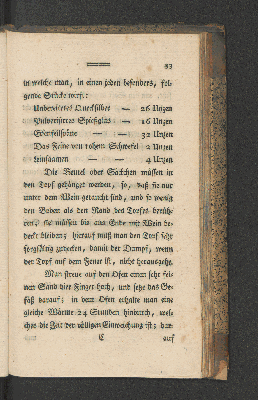 33
in welche man, in einen jeden besonders, fol-
gende Stücke wirf:
Unbereitetes Quecksilber — 26 Unzen
Pulverisirtes Spießglas — 16 Unzen
— — 32 Unzen
Das Feine von rohem Schwefel 2 Unzen
Leinsaamen — — 4 Unzen
Die Beutel oder Säckchen müssen in
den Topf gehänget werden, so, daß sie nur
unter dem Wein getaucht sind, und so wenig
den Boden als den Rand des Topfes berüh-
ren, sie müssen bis ans Ende mit Wein be-
deckt bleiben; hierauf muß man den Topf sehr
sorgfältig zudecken, damit der Dampf, wenn
der Topf auf dem Feuer ist, nicht herausgehe.
Man streue auf den Ofen einen sehr fei-
nen Sand vier Finger hoch, und setze das Ge-
fäß darauf; in dem Ofen erhalte man eine
gleiche Wärme 24 Stunden hindurch, wel-
ches die Zeit der völligen Einweichung ist; dar-
C auf